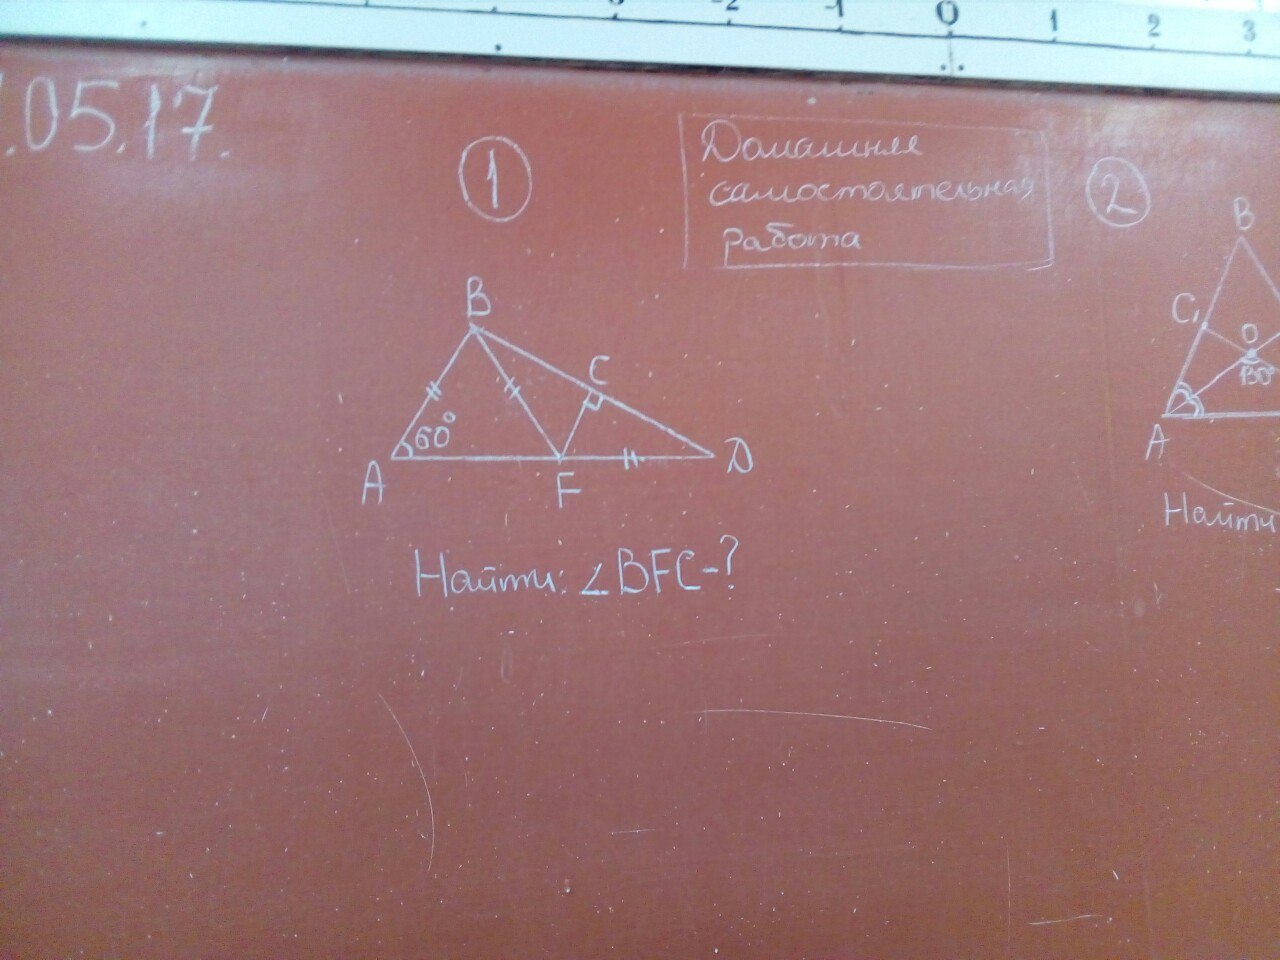 -2 -1 0 1 2 3
.05.17.
1
Домашняя
самостоятельная
работа
2
B
C
60°
A
F
D
Найти: ∠BFC-?
B
C₁
O
130°
A
Найти